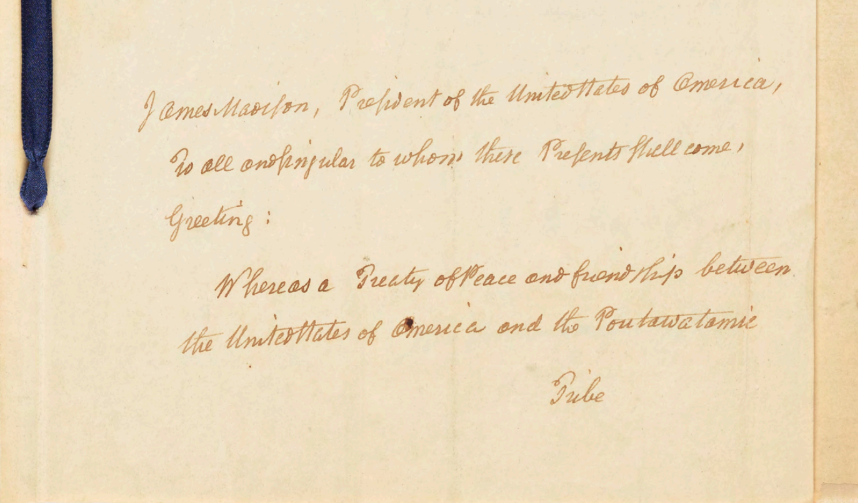 James Madison, President of the United States of America,
To all and singular to whom these Presents shall come,
Greeting:
Whereas a Treaty of Peace and friendship between
the United States of America and the Poutawatamie
Tribe